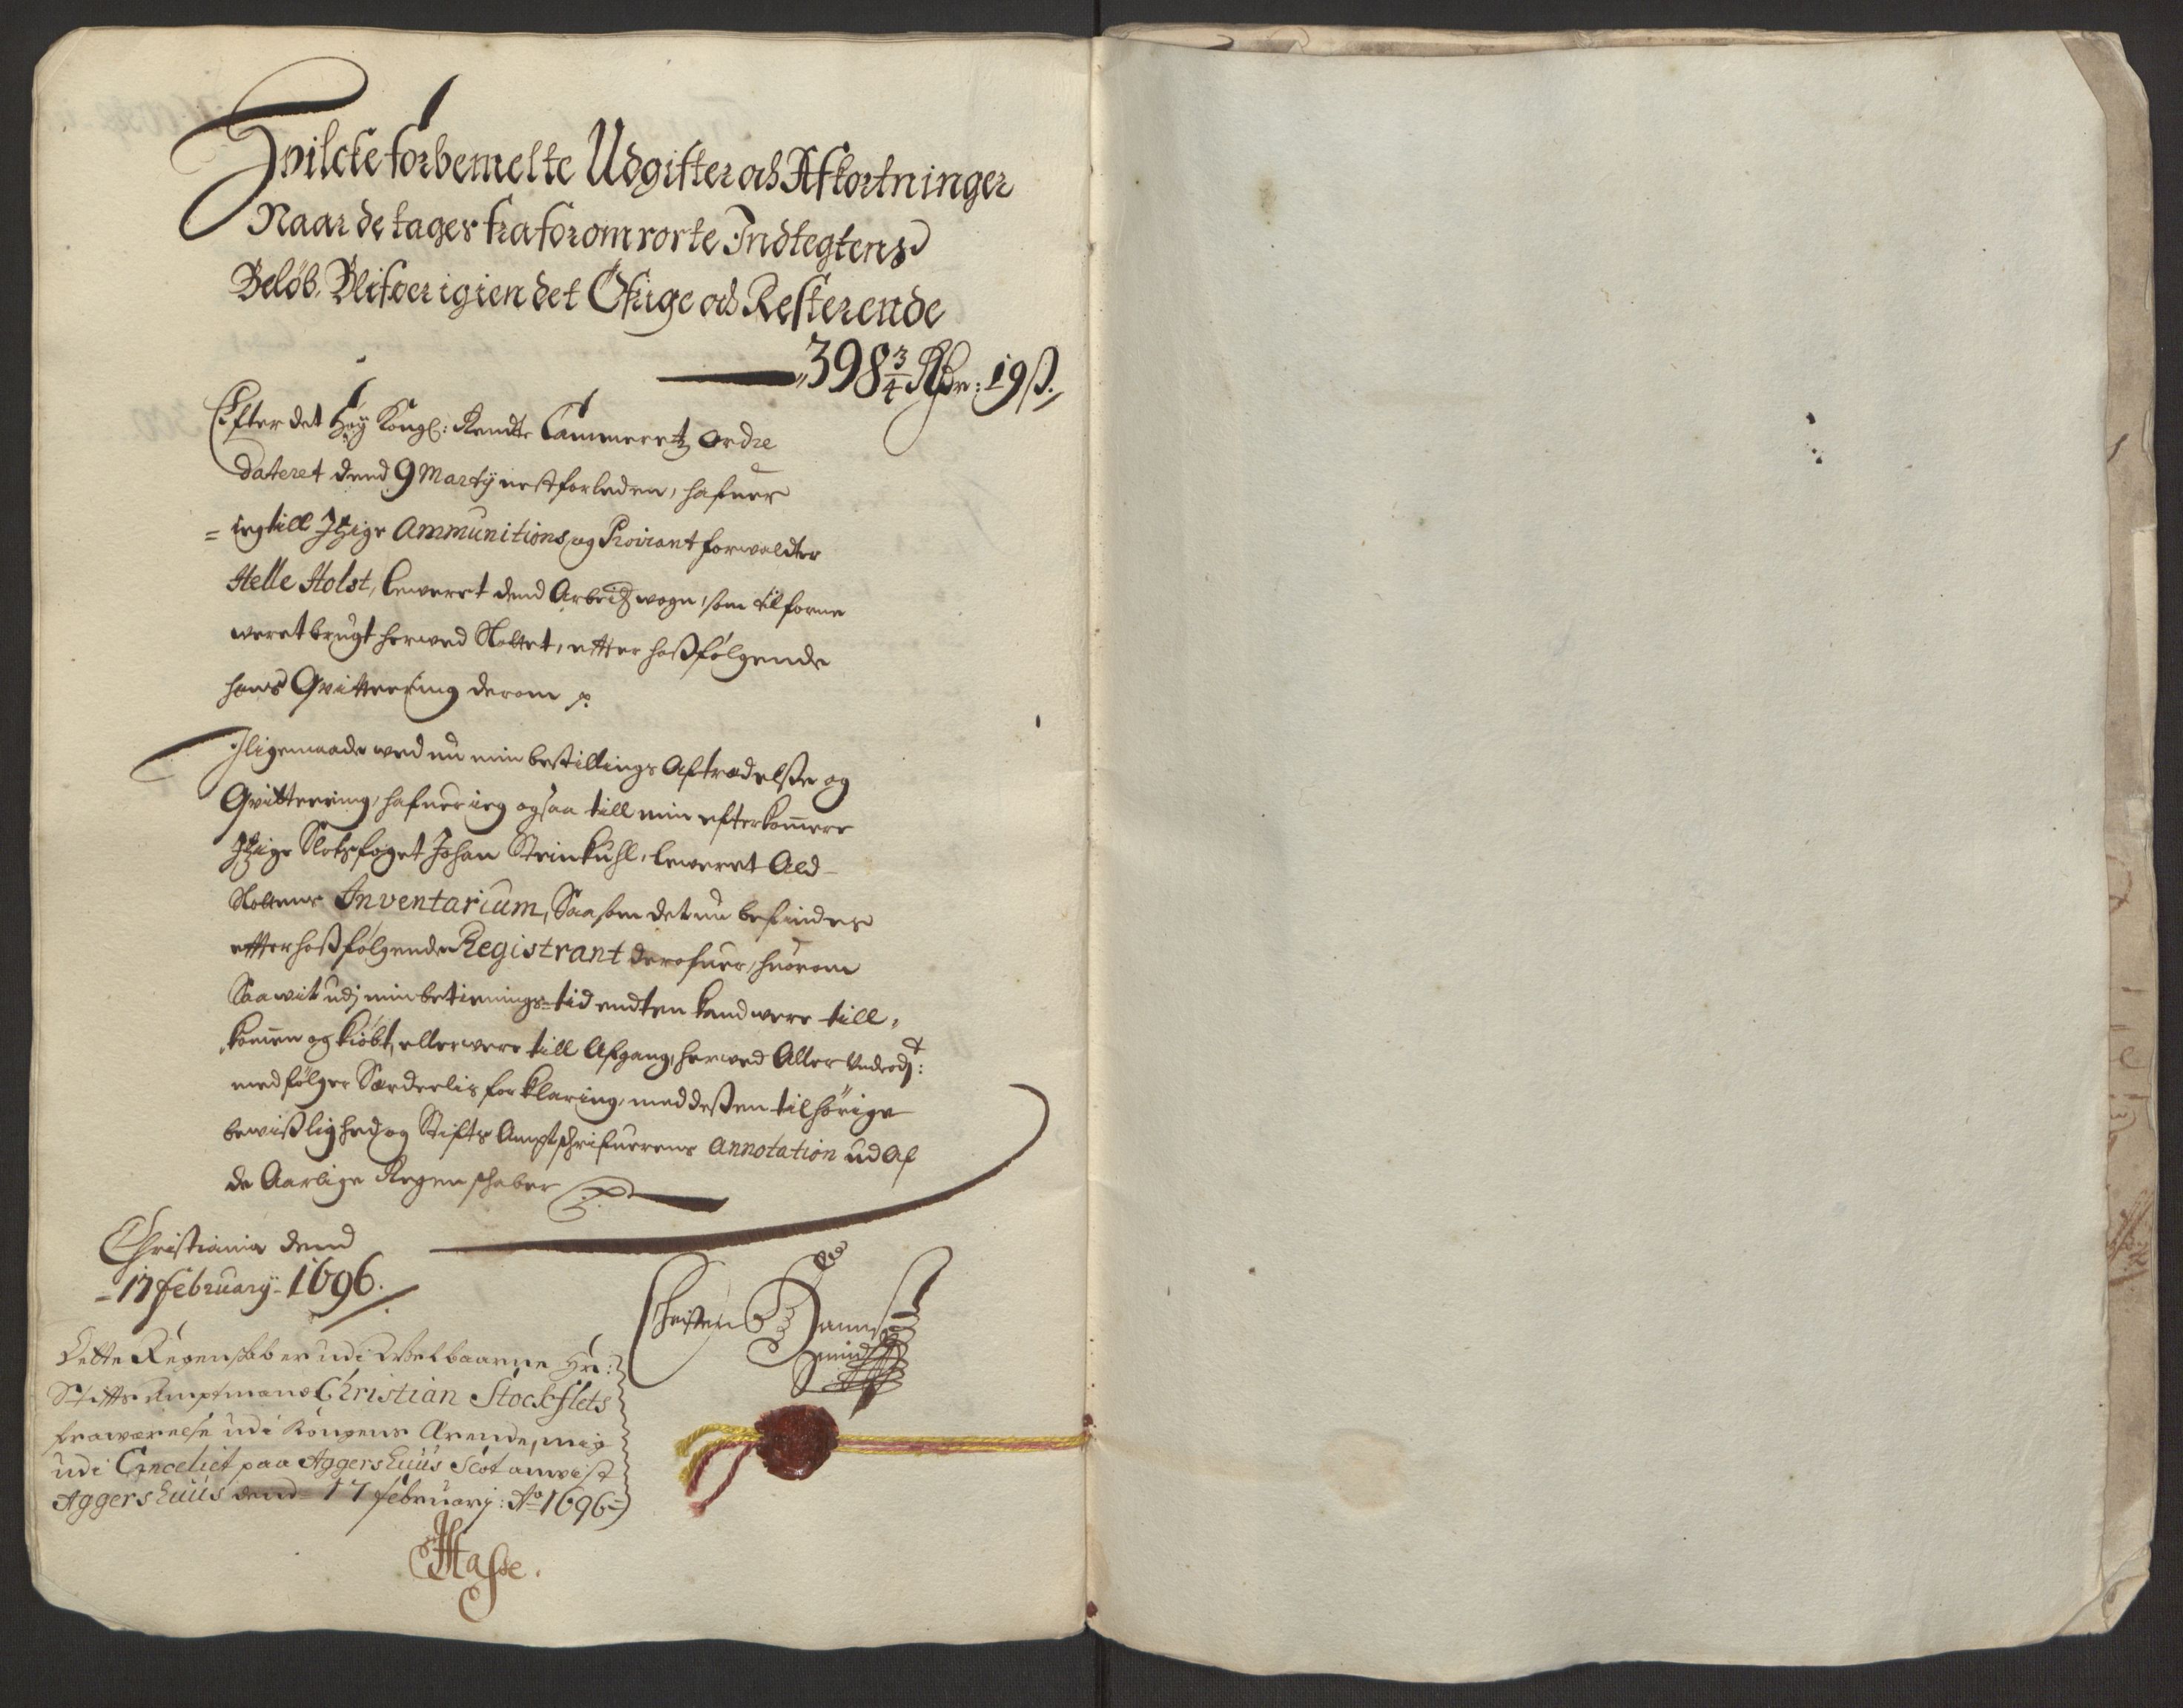 Hvilcke forbemelte Udgifter och Afkortninger
Naar de tages fra foromrorte Indtegtens
Beløb, Blifver igien det Öfrige och Resterende
398 3/4 Rdr: 19 ß.
Efter det Høy Kongl: Rendte Cammeretz ordre
dateret dend 9 Martij nestforleden, hafuer
= ieg till Itzige Ammunitions og Proviant forvalter
Helle Holst, leweret dend Arbeidz wogn, som tilforne
weret brugt herwed Slottet, effter hoßfölgende
hans Qvittering derom p.
Iligemaade wed nu min bestillings Aftrædelße og
Qvittering, hafuer ieg ogsaa till min efterkommere
Itzige Slotsfoget Johan Steinkuhl, leweret Ald
Slottens Inventarium, Saasom det nu befindes
effter hoßfølgende Registrant derofuer, huorom
Saawit udj min betienings-tid endten kand were till-
kommen og kiöbt, eller were till Afgang, herwed Aller underdt:
medfölger Særdelis forklaring, med deßen tilhörige
bewißlighed og Stifts Ampt schrifuerens annotation ud af
de Aarlige Regenschaber p.
Christiania dend
- 17 february - 1696.
Christen Bannsen
Smidt
Dette Regenskab er udi Welbaarne Hr:
Stiffts Amptmand Christian Stockflets
fraværelse udi Kongens Ærende, mig
udi Cancelliet paa Aggershuus Slot anvist
Aggershuus dend 17 februarij: Ao 1696
Hasse.